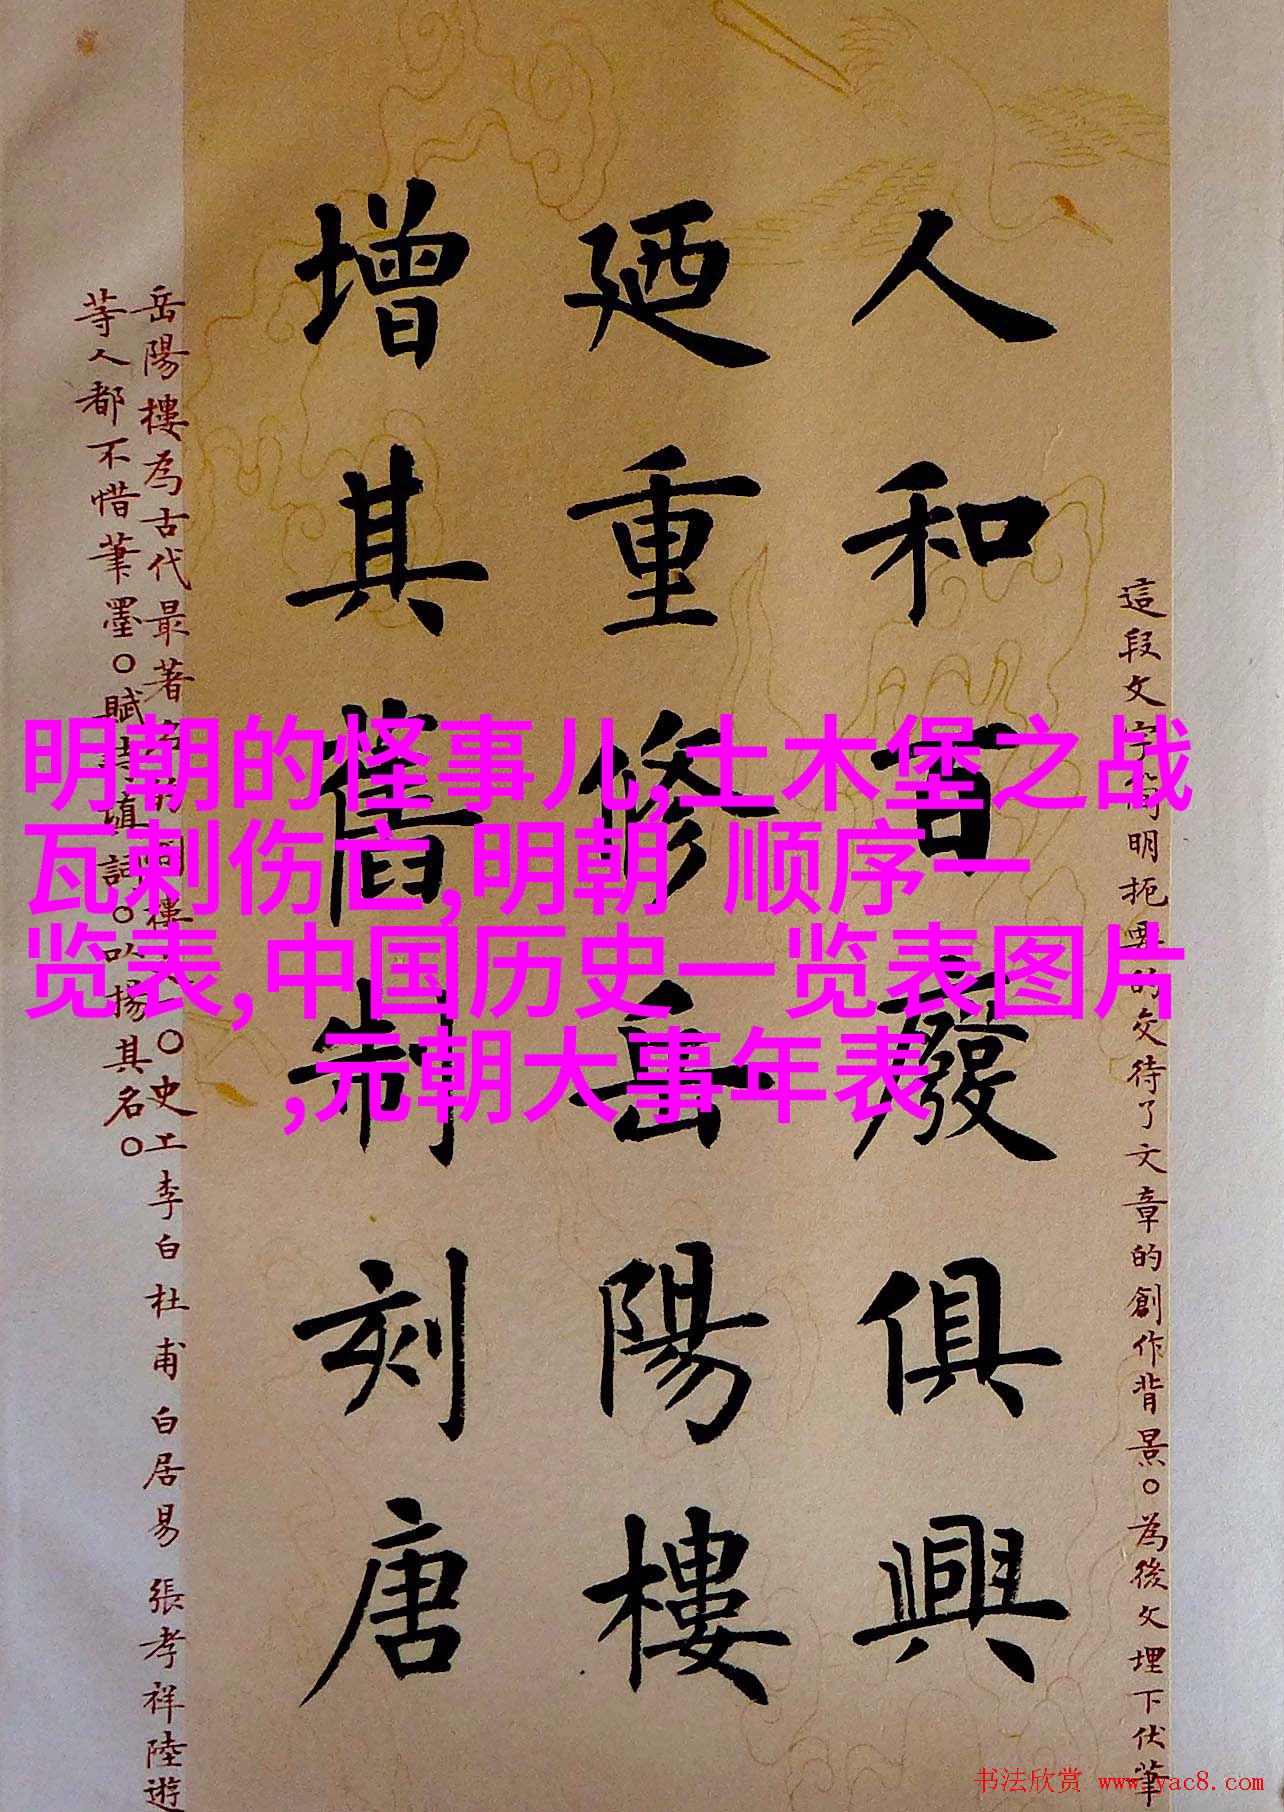 這段文字簡明扼要的交待了文章的創作背景。為後文埋下伏筆
人和百廢俱興
廼重修岳陽樓
增其舊制刻唐
岳陽樓為古代最著名的 樓 。史 李白杜甫白居易張孝祥陸遊
等人都不惜筆墨。賦詩填詞。以揚其名。
明朝的怪事儿,土木堡之战
瓦剌伤亡,明朝 顺序一
览表,中国历史一览表图片
,元朝大事年表
书法欣赏 www.yac8.com